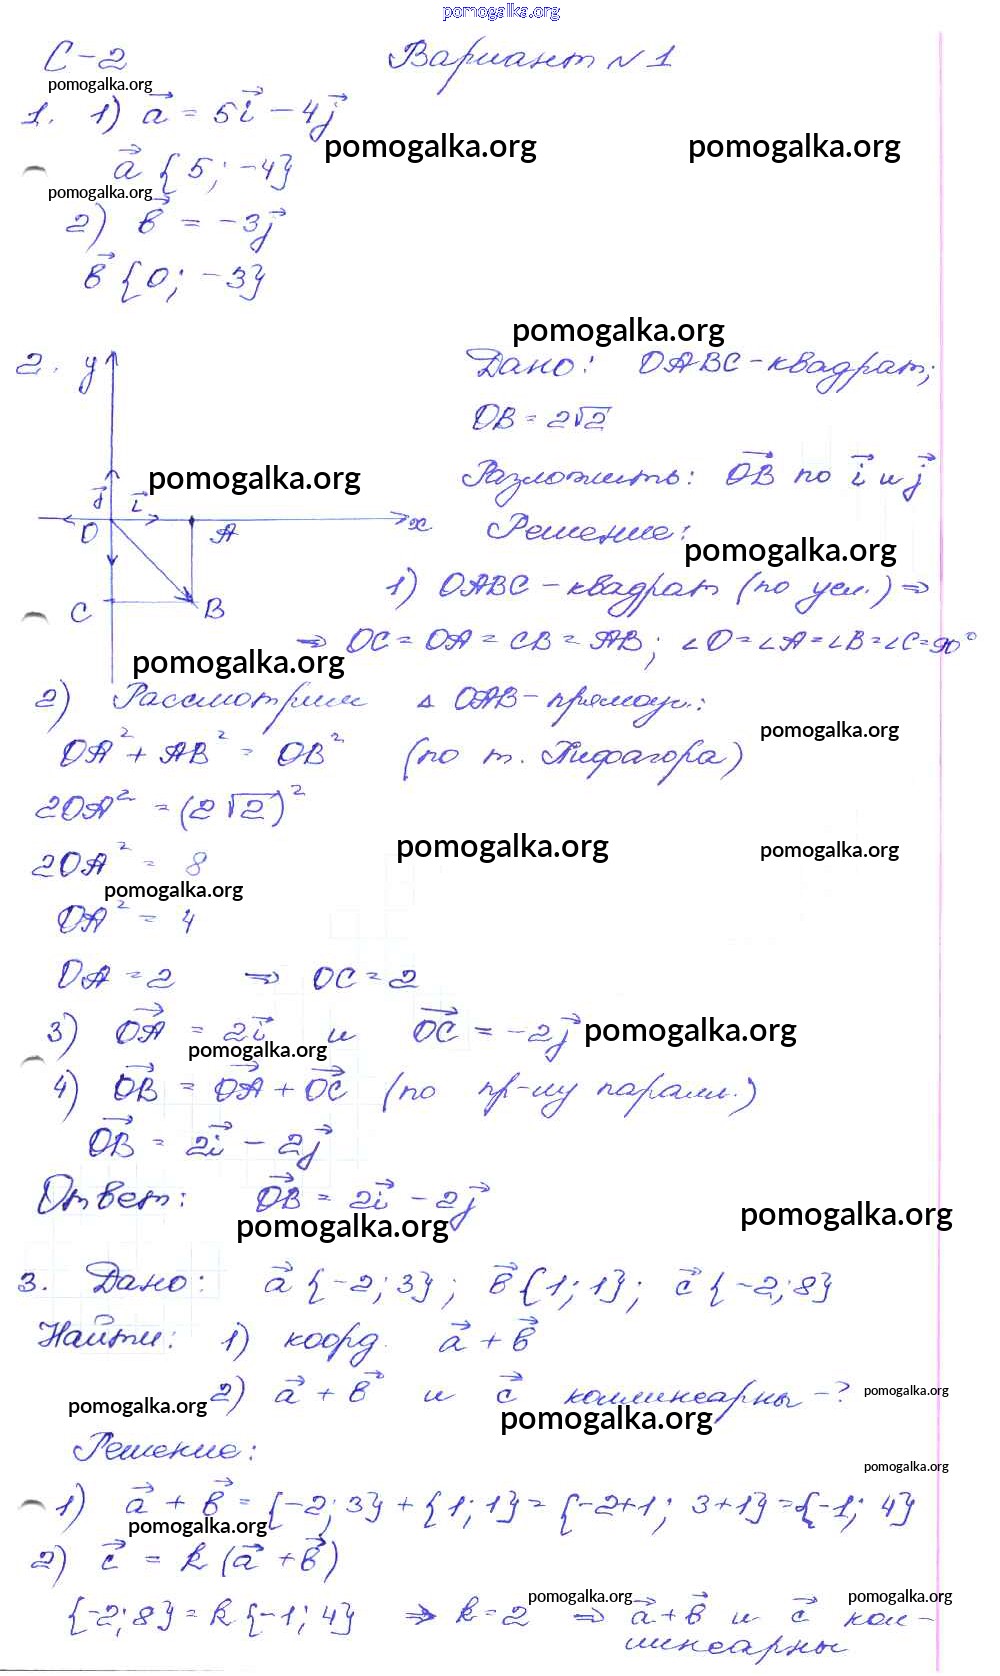 pomogalka.org
С-2 Вариант №1
pomogalka.org
1. 1) a⃗ = 5i⃗ - 4j⃗
pomogalka.org pomogalka.org
a⃗ {5; -4}
pomogalka.org
2) в⃗ = -3j⃗
в⃗ {0; -3}
pomogalka.org
2. y Дано: ОАВС - квадрат;
ОВ = 2√2
pomogalka.org
Разложить: ОВ⃗ по i⃗ и j⃗
j⃗ i⃗
O A x Решение:
pomogalka.org
1) ОАВС - квадрат (по усл.) ⇒
C B
⇒ ОС = ОА = СВ = АВ; ∠О = ∠А = ∠В = ∠С = 90°
pomogalka.org
2) Рассмотрим △ ОАВ - прямоуг.:
pomogalka.org
ОА² + АВ² = ОВ² (по т. Пифагора)
2ОА² = (2√2)²
pomogalka.org pomogalka.org
2ОА² = 8
pomogalka.org
ОА² = 4
ОА = 2 ⇒ ОС = 2
3) ОА⃗ = 2i⃗ и ОС⃗ = -2j⃗ pomogalka.org
pomogalka.org
4) ОВ⃗ = ОА⃗ + ОС⃗ (по пр-лу паралл.)
ОВ⃗ = 2i⃗ - 2j⃗
Ответ: ОВ⃗ = 2i⃗ - 2j⃗
pomogalka.org pomogalka.org
3. Дано: a⃗ {-2; 3}; в⃗ {1; 1}; c⃗ {-2; 8}
Найти: 1) коорд. a⃗ + в⃗
2) a⃗ + в⃗ и c⃗ коллинеарны - ?
pomogalka.org
pomogalka.org pomogalka.org
Решение:
pomogalka.org
1) a⃗ + в⃗ = {-2; 3} + {1; 1} = {-2+1; 3+1} = {-1; 4}
pomogalka.org
2) c⃗ = k (a⃗ + в⃗)
pomogalka.org pomogalka.org
{-2; 8} = k {-1; 4} ⇒ k = 2 ⇒ a⃗ + в⃗ и c⃗ кол-
линеарны